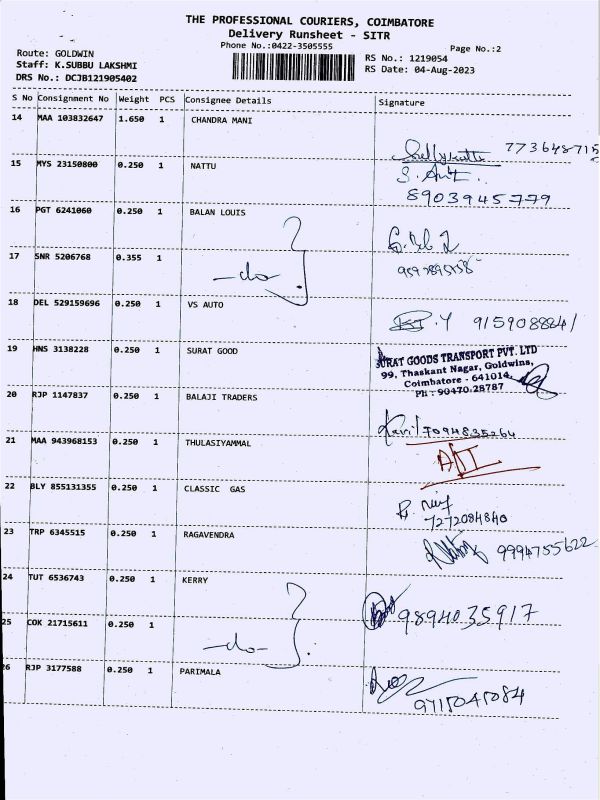 THE PROFESSIONAL COURIERS, COIMBATORE
Delivery Runsheet - SITR
Phone No.:0422-3505555
Page No.:2
Route: GOLDWIN
Staff: K.SUBBU LAKSHMI
DRS No.: DCJB121905402
RS No.: 1219054
RS Date: 04-Aug-2023
S No Consignment No Weight PCS Consignee Details Signature
14 MAA 103832647 1.650 1 CHANDRA MANI
773648715
15 MYS 23150800 0.250 1 NATTU
8903945779
16 PGT 6241060 0.250 1 BALAN LOUIS
17 SNR 5206768 0.355 1 -do-
18 DEL 529159696 0.250 1 VS AUTO
9159088241
19 HNS 3138228 0.250 1 SURAT GOOD
SURAT GOODS TRANSPORT PVT. LTD
99, Thaskant Nagar, Goldwins,
Coimbatore - 641014.
Ph : 90470.28787
20 RJP 1147837 0.250 1 BALAJI TRADERS
7094835264
21 MAA 943968153 0.250 1 THULASIYAMMAL
22 BLY 855131355 0.250 1 CLASSIC GAS
7272084840
23 TRP 6345515 0.250 1 RAGAVENDRA
9994755622
24 TUT 6536743 0.250 1 KERRY
9894035917
25 COK 21715611 0.250 1 -do-
26 RJP 3177588 0.250 1 PARIMALA
9715041084